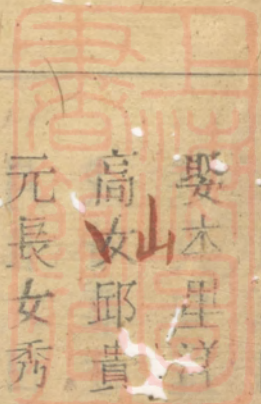 娶本里洋
高女邱貴
元長女秀